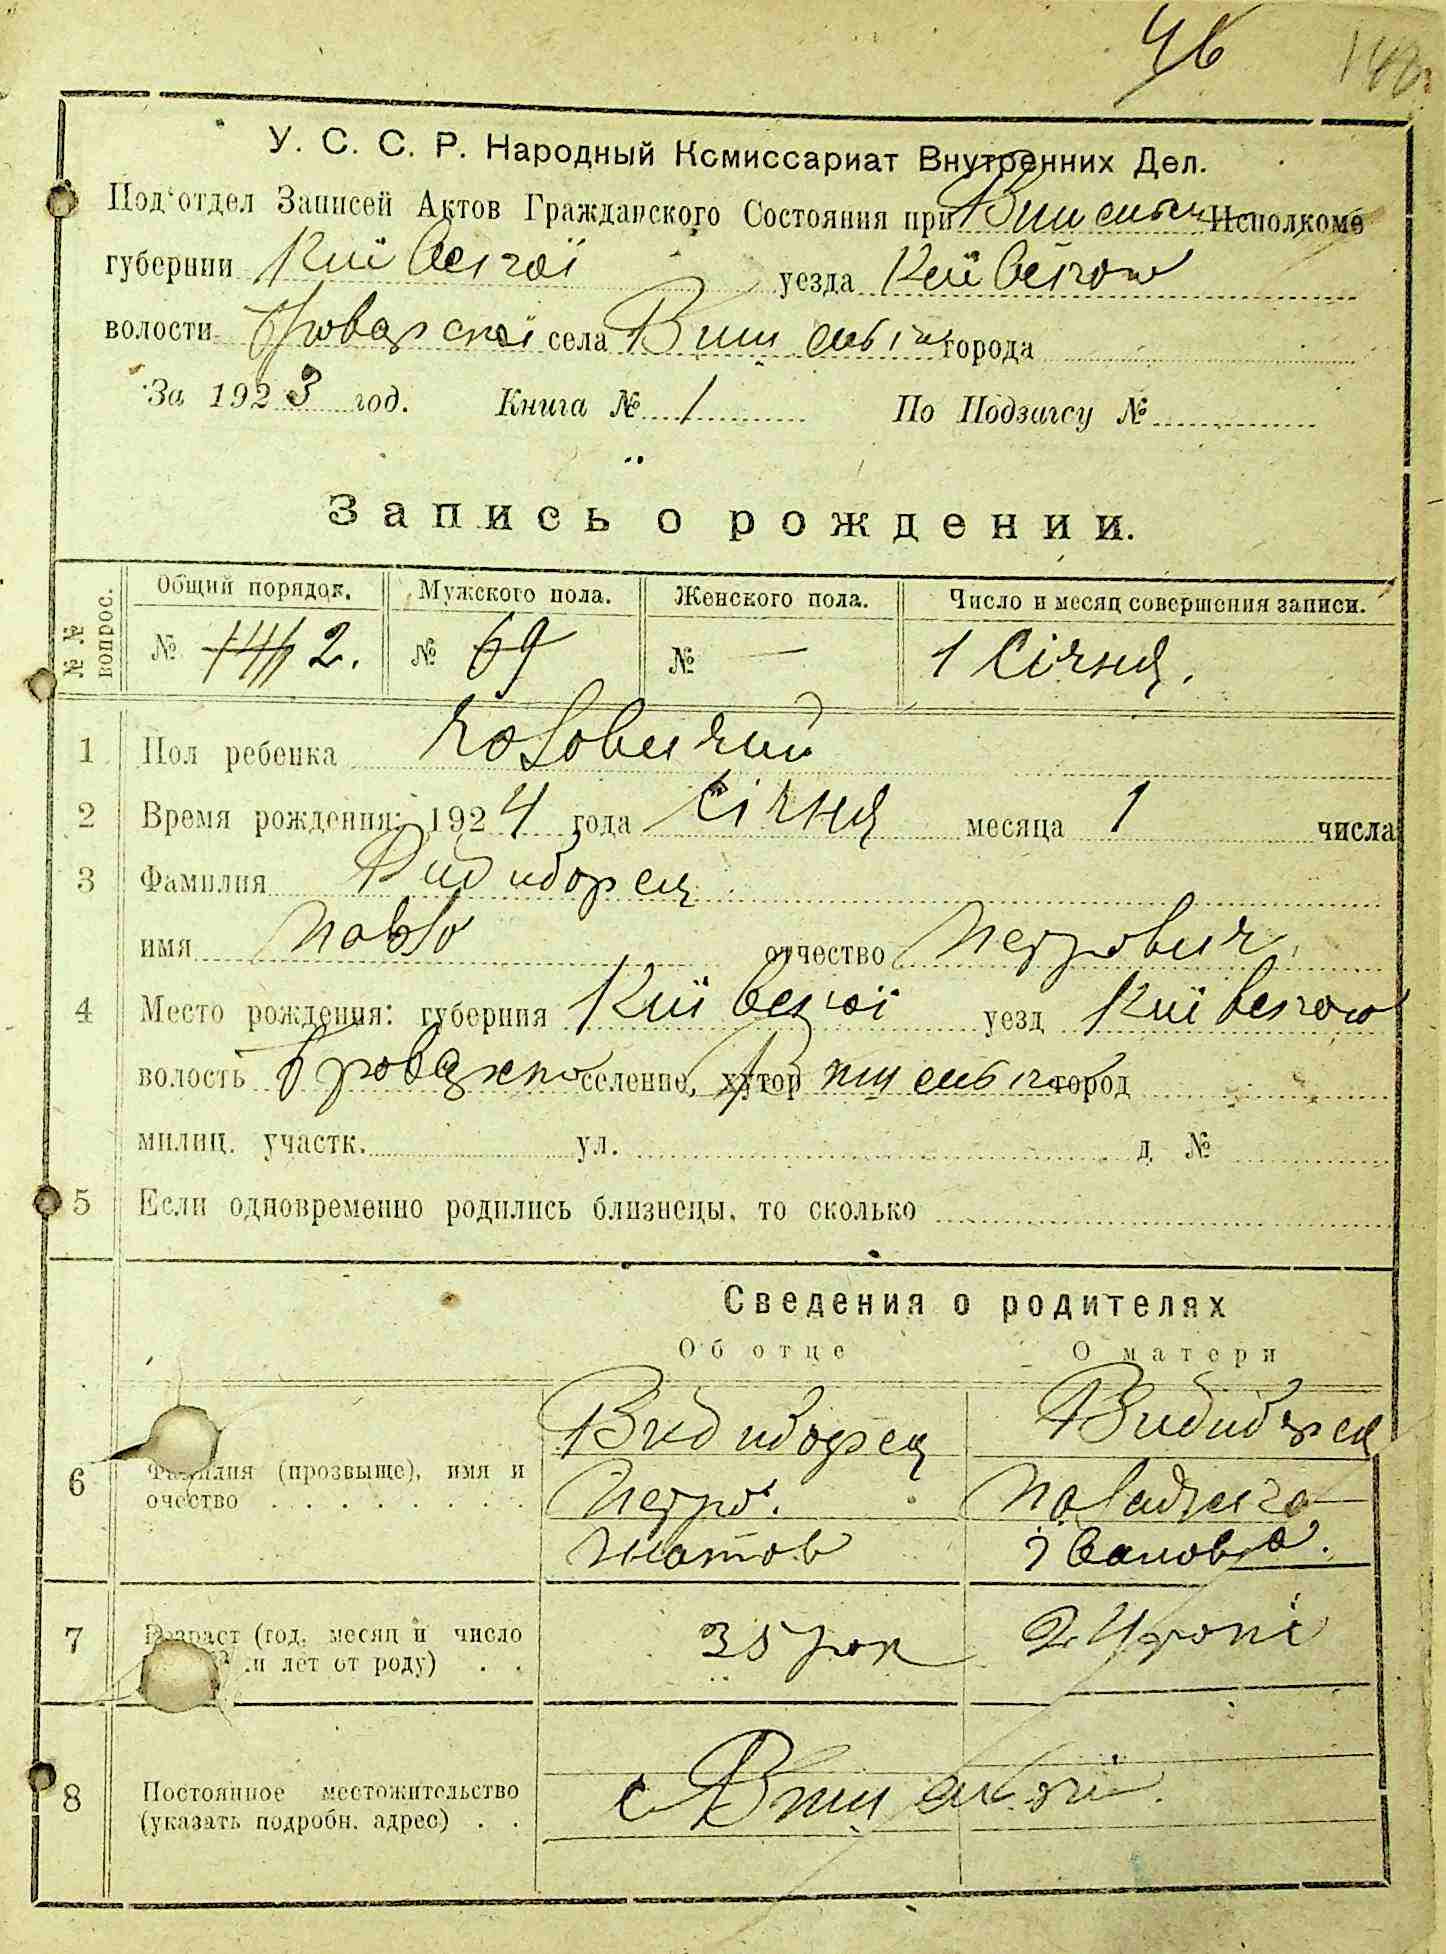 46
148
У. С. С. Р. Народный Комиссариат Внутренних Дел.
Под'отдел Записей Актов Гражданского Состояния при Исполкоме
губернии Київської уезда Київського
волости Броварської села города
За 1923 год. Книга № 1 По Подзагсу №
Запись о рождении.
№ № вопрос. Общий порядок. Мужского пола. Женского пола. Число и месяц совершения записи.
№ 2. № 69 № — 1 Січня.
1 Пол ребенка чоловичий
2 Время рождения: 1924 года Січня месяца 1 числа
3 Фамилия Видиборец
имя Павло отчество Петрович
4 Место рождения: губерния Київської уезд Київського
волость селение, хутор город
милиц. участк. ул. д. №
5 Если одновременно родились близнецы, то сколько
Сведения о родителях
Об отце О матери
Видиборец Видиборец
6 Фамилия (прозвыще), имя и Петро. Палажка
очество Ивановна.
7 Возраст (год, месяц и число 35 рок 24 роки
ли лет от роду)
8 Постоянное местожительство с
(указать подробн. адрес)